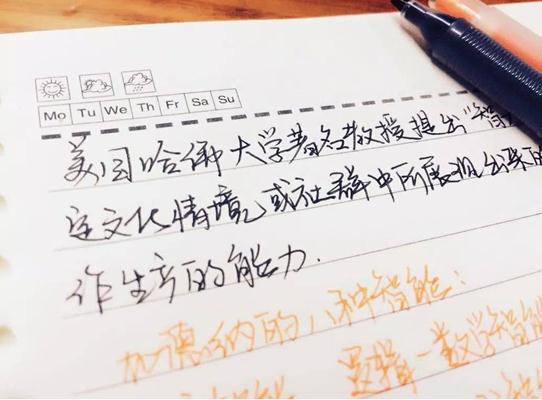 Mo Tu We Th Fr Sa Su
美国哈佛大学著名教授提出"智
定文化情境,或社群中所展现出来的
作生产的能力.
加德纳的八种智能:
逻辑-数学智能